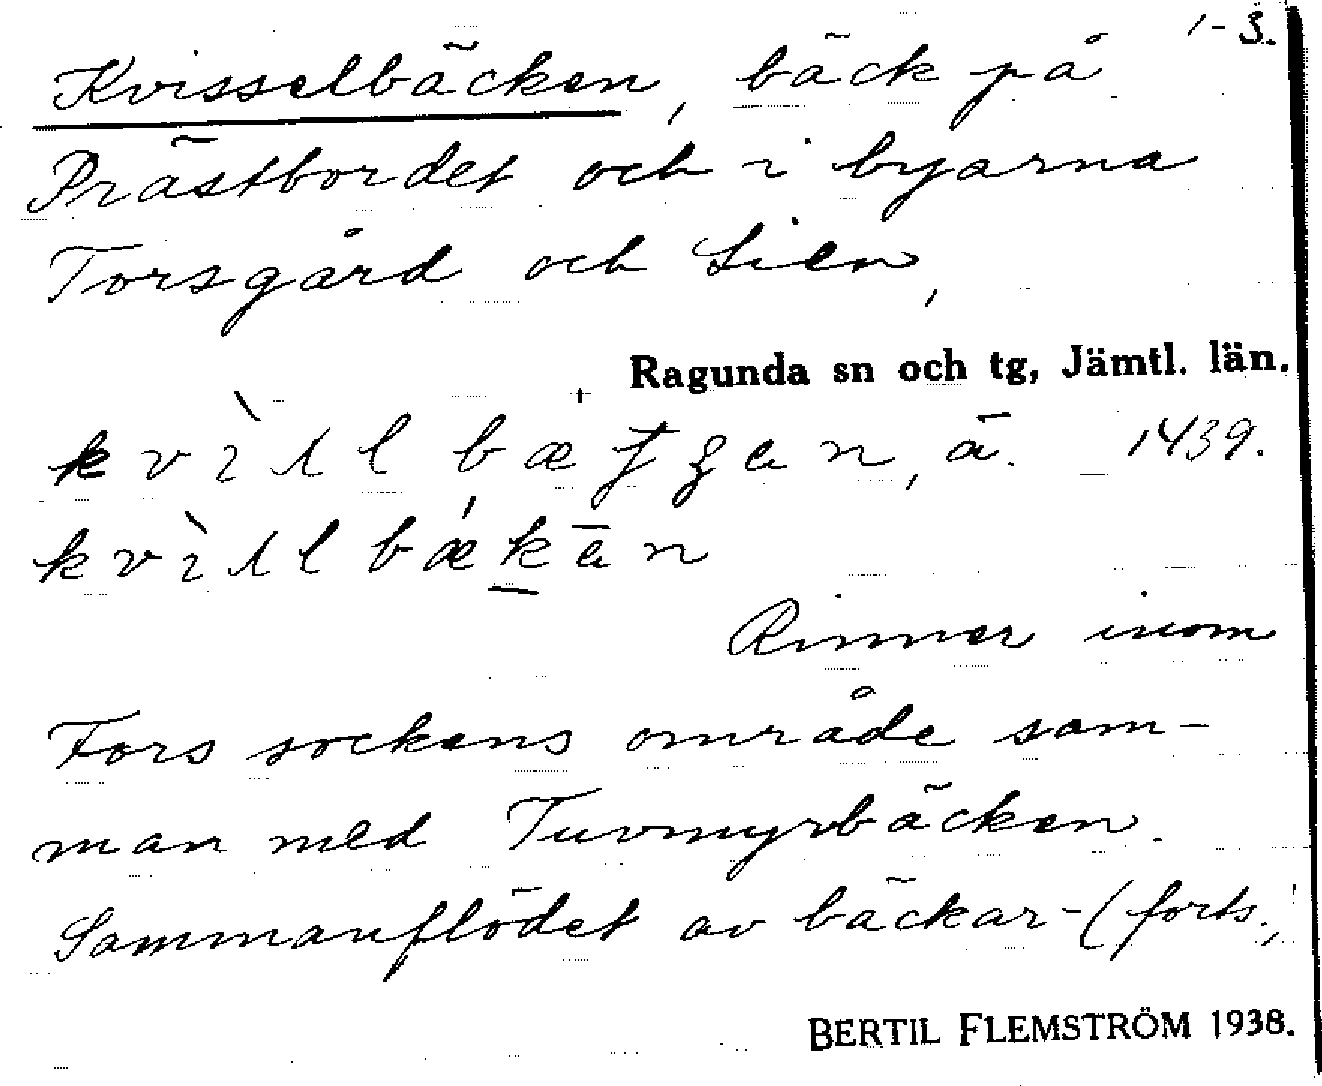 1-3.
Kvisselbäcken, bäck på
Prästbordet och i byarna
Torsgård och Lien,
Ragunda sn och tg, Jämtl. län.
1439.
Rinner inom
Fors sockens område sam-
man med Tuvmyrbäcken.
Sammanflödet av bäckar-(forts.,
BERTIL FLEMSTRÖM 1938.